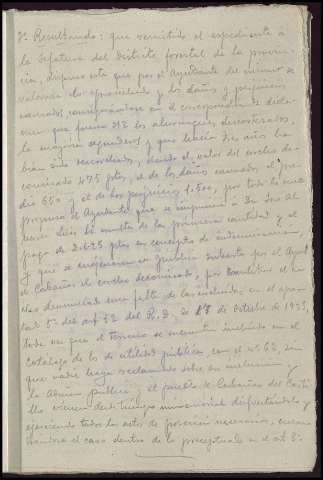 7º Resultando: que remitido el expediente á
la Jefatura del Distrito forestal de la provin-
cia, dispuso esta que por el Ayudante del mismo se
valorara lo aprovechado y los daños y perjuicios
causados, consignándose en el correspondiente dicta-
men que fueron 212 los alcornoques descorchados,
la mayoría segunderos y que hacía dias ha-
bian sido descorchados, siendo el valor del corcho de-
comisado 475 ptas, el de los daños causados, el
de 650 y el de los perjuicios 1.500, por todo lo cual
propuso el Ayudante que se impusiera á
de multa de la primera cantidad y el
pago de 2.625 ptas en concepto de indemnización,
y que se enajenara en pública subasta por el Ayunt
de Cabañas el corcho decomisado, por constituir el he-
cho denunciado una falta de las incluidas en el apar-
tado 5º del art 52 del R.D. de 17 de Octubre de 1925,
toda vez que el terreno se encuentra incluido en el
Catálogo de los de utilidad pública, con el nº 62, sin
que nadie haya reclamado sobre su exclusión y
la Admon pública y el pueblo de Cabañas del Casti-
llo vienen desde tiempo inmemorial disfrutándolo y
ejerciendo todos los actos de posesión necesarios,
el caso dentro de lo preceptuado en el art 8º